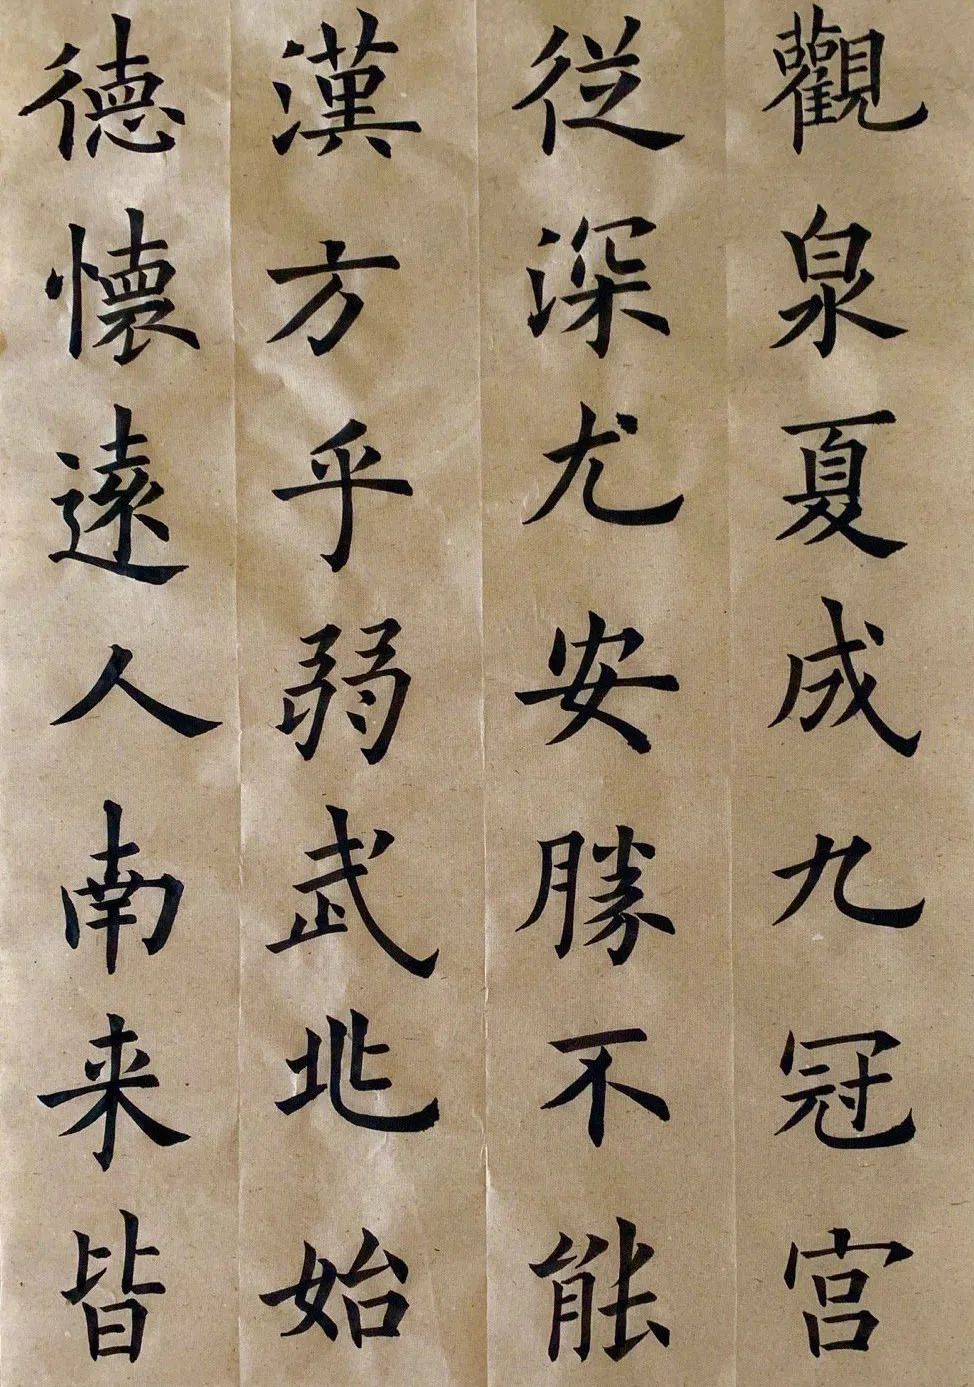 觀泉夏成九冠宫
従深尤安勝不能
漢方乎弱武北始
徳懐遠人南来皆